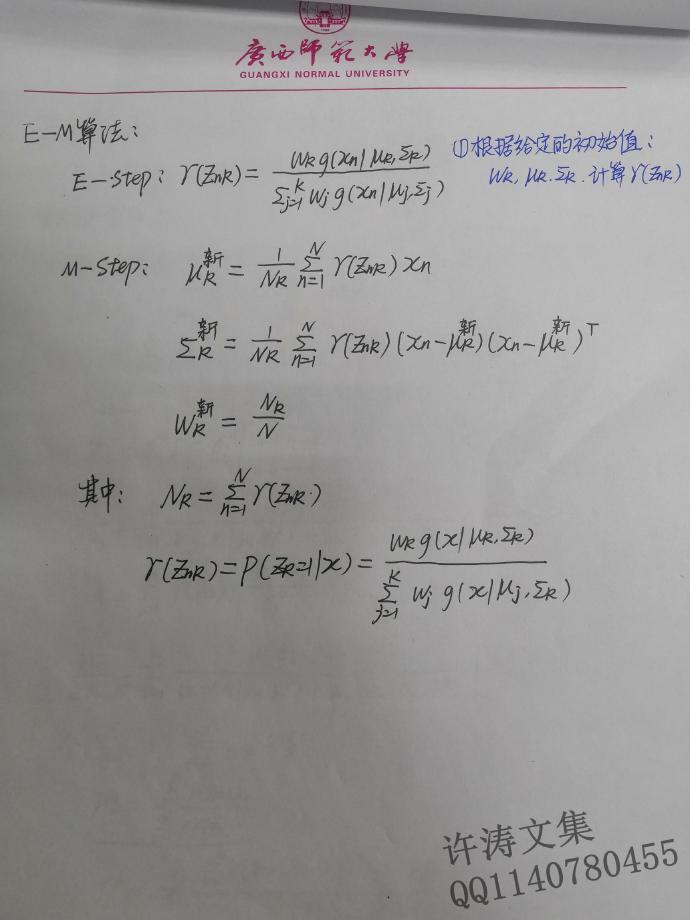 廣西師範大學
GUANGXI NORMAL UNIVERSITY
E-M算法:
①根据给定的初始值:
E-step: γ(Znk) = wk g(xn|μk,Σk) / Σ_{j=1}^{K} wj g(xn|μj,Σj)
wk, μk, Σk, 计算γ(Znk)
M-step: μk^新 = 1/Nk Σ_{n=1}^{N} γ(Znk) xn
Σk^新 = 1/Nk Σ_{n=1}^{N} γ(Znk)(xn-μk^新)(xn-μk^新)^T
wk^新 = Nk/N
其中: Nk = Σ_{n=1}^{N} γ(Znk)
γ(Znk) = p(Zk=1|x) = wk g(x|μk,Σk) / Σ_{j=1}^{K} wj g(x|μj,Σk)
许涛文集
QQ1140780455